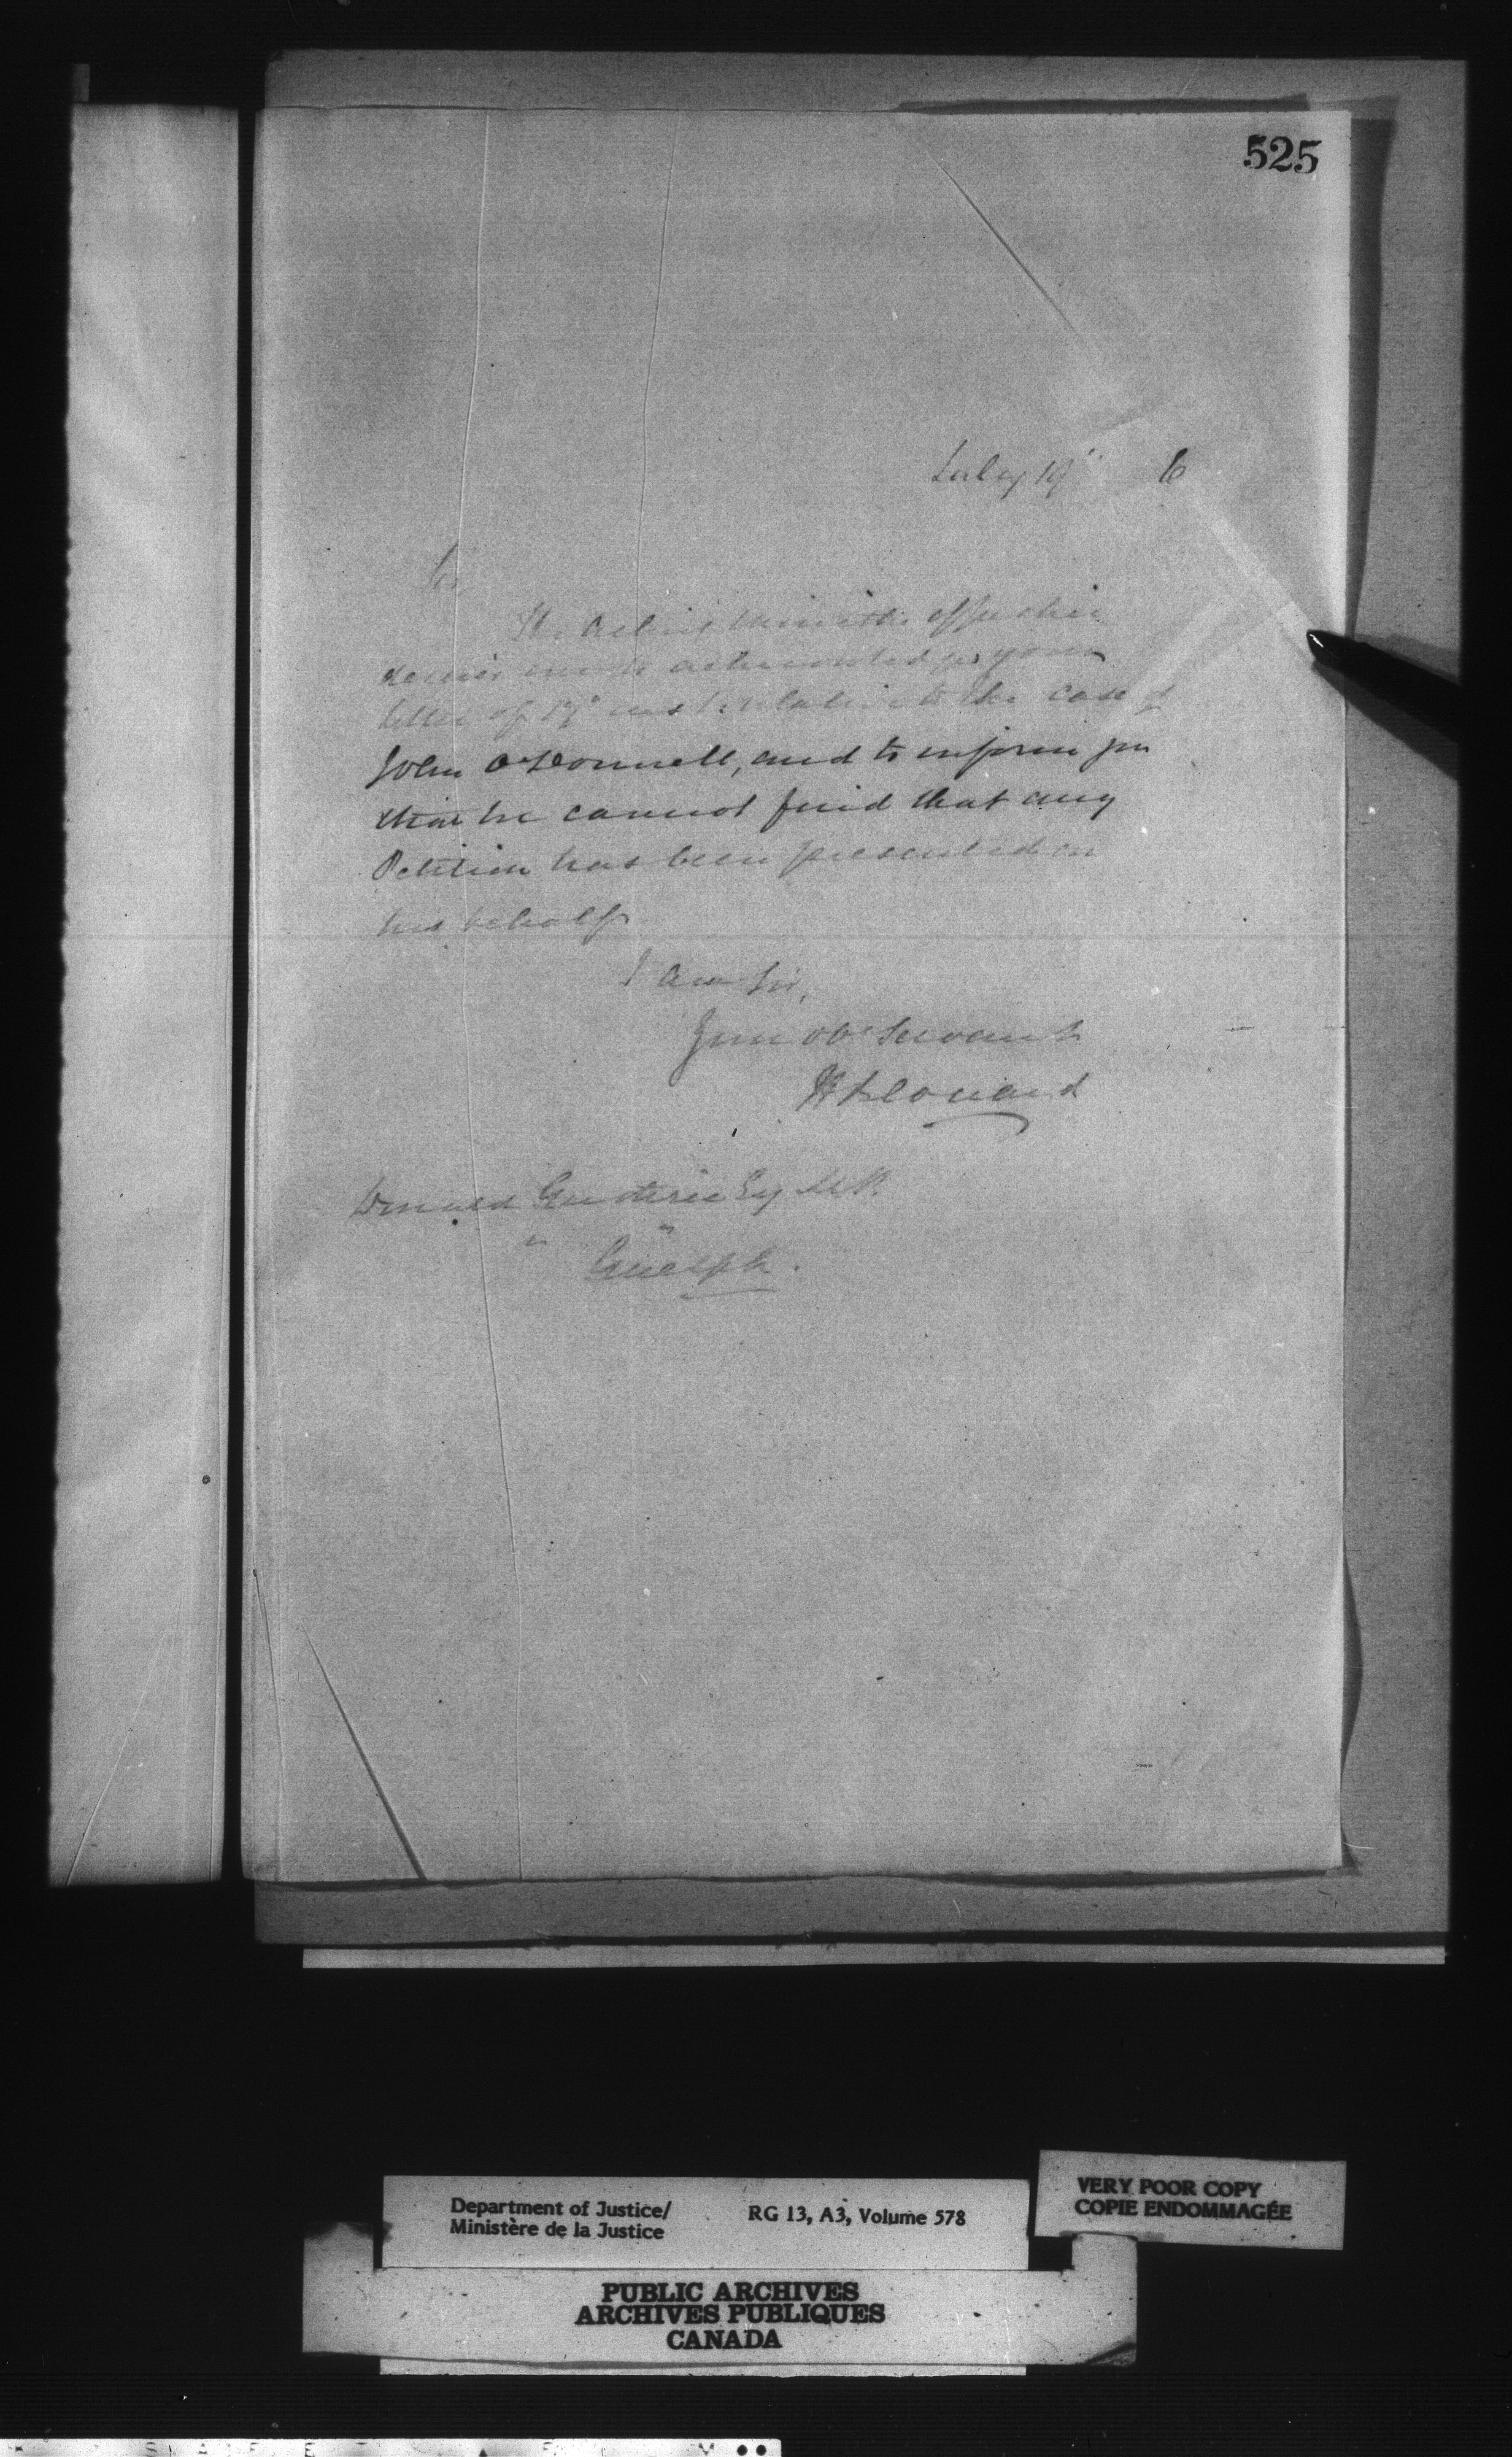 525
July 19" 6
Sir,
The Acting Minister of Justice
desires me to acknowledge your
letter of 17" inst relative to the case of
John O'Donnell, and to inform you
that he cannot find that any
Petition has been presented on
his behalf
I am Sir,
Your obt Servant
Donald Guthrie Esq M.P.
" "
Guelph.
Department of Justice/
Ministère de la Justice
RG 13, A3, Volume 578
VERY POOR COPY
COPIE ENDOMMAGÉE
PUBLIC ARCHIVES
ARCHIVES PUBLIQUES
CANADA